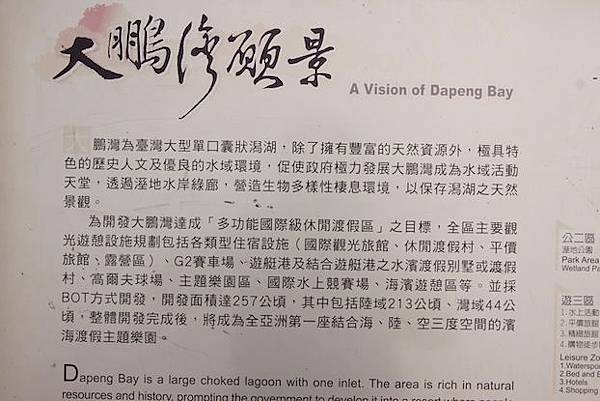 大鵬灣願景
A Vision of Dapeng Bay
大鵬灣為臺灣大型單口囊狀潟湖，除了擁有豐富的天然資源外，極具特
色的歷史人文及優良的水域環境，促使政府極力發展大鵬灣成為水域活動
天堂，透過溼地水岸綠廊，營造生物多樣性棲息環境，以保存潟湖之天然
景觀。
為開發大鵬灣達成「多功能國際級休閒渡假區」之目標，全區主要觀
光遊憩設施規劃包括各類型住宿設施（國際觀光旅館、休閒渡假村、平價
旅館、露營區）、G2賽車場、遊艇港及結合遊艇港之水濱渡假別墅或渡假
村、高爾夫球場、主題樂園區、國際水上競賽場、海濱遊憩區等。並採
BOT方式開發，開發面積達257公頃，其中包括陸域213公頃、灣域44公
頃，整體開發完成後，將成為全亞洲第一座結合海、陸、空三度空間的濱
海渡假主題樂園。
Dapeng Bay is a large choked lagoon with one inlet. The area is rich in natural
resources and history, prompting the government to develop it into a resort where people
公二區
溼地公園
Park Area
Wetland Pa
遊三區
1.水上活動
2.平價旅館
3.精緻旅館
4.購物徒步
Leisure Zo
1.Waterspor
2.Bed and B
3.Hotels
4.Shopping